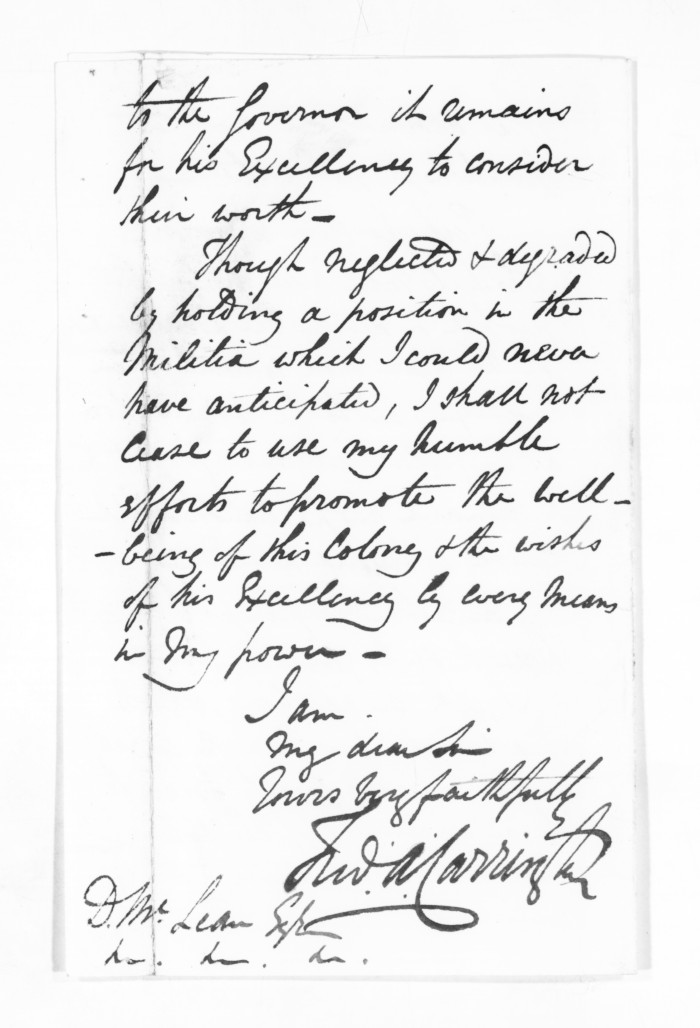 to the Governor it remains
for his Excellency to consider
their worth –
Though neglected & degraded
by holding a position in the
Militia which I could never
have anticipated, I shall not
cease to use my humble
efforts to promote the well-
-being of this Colony & the wishes
of his Excellency by every means
in my power –
I am.
My dear Sir
Yours very faithfully
Fred. A. Carrington
D. Mc Lean Esqre